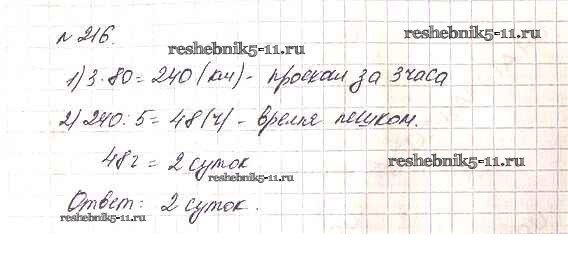 № 216.
reshebnik5-11.ru
1) 3·80=240 (км) - проехал за 3 часа
2) 240:5=48 (ч) - время пешком.
48 ч = 2 суток
reshebnik5-11.ru
reshebnik5-11.ru
Ответ: 2 суток.
reshebnik5-11.ru